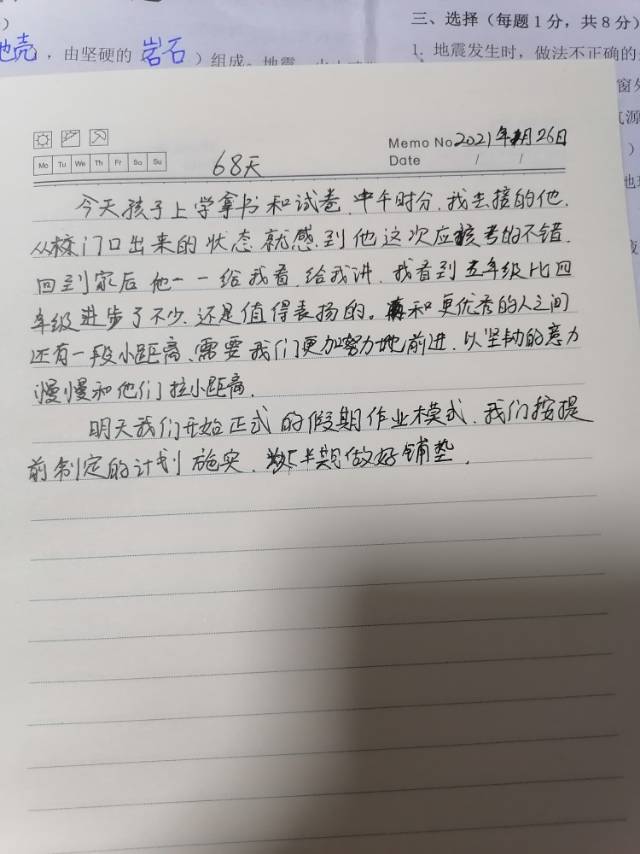 三、选择（每题1分，共8分）
地壳，由坚硬的（岩石）组成。地震、火山
1. 地震发生时，做法不正确的
Memo No. 2021年1月26日
Mo Tu We Th Fr Sa Su
68天
Date / /
今天孩子上学拿书和试卷，中午时分，我去接的他，
从校门口出来的状态就感到他这次应该考的不错，
回到家后他一一给我看，给我讲，我看到五年级比四
年级进步了不少，还是值得表扬的。和更优秀的人之间
还有一段小距离，需要我们更加努力地前进，以坚韧的意力
慢慢和他们拉小距离，
明天我们开始正式的假期作业模式，我们按提
前制定的计划施实，为下半期做好铺垫，